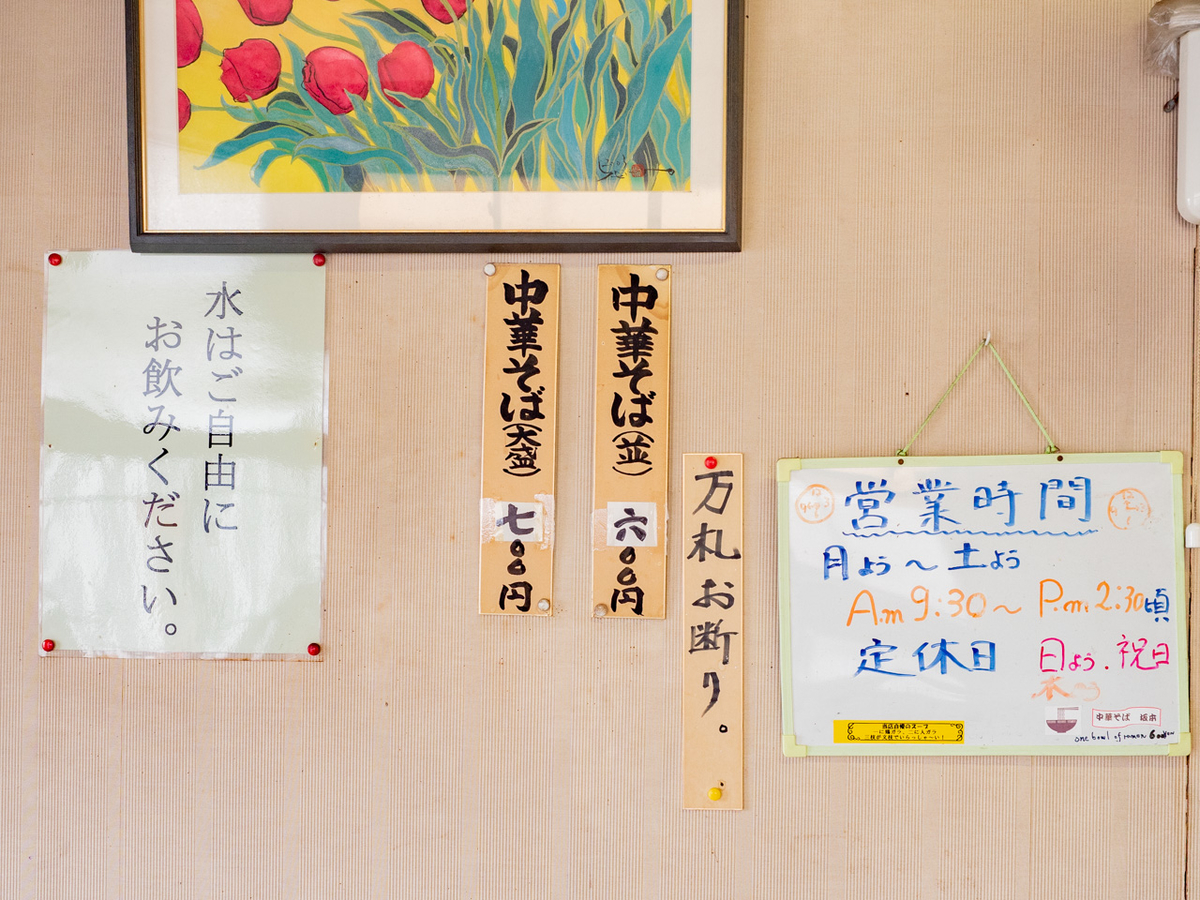 水はご自由に
お飲みください。
中華そば(並)
六〇〇円
中華そば(大盛)
七〇〇円
万札お断り。
営業時間
月よう〜土よう
A.m 9:30〜 P.m. 2:30頃
定休日 日よう.祝日
当店自慢のスープ
一に鶏ガラ、二に人ガラ
中華そば 坂本
one bowl of ramen 600yen